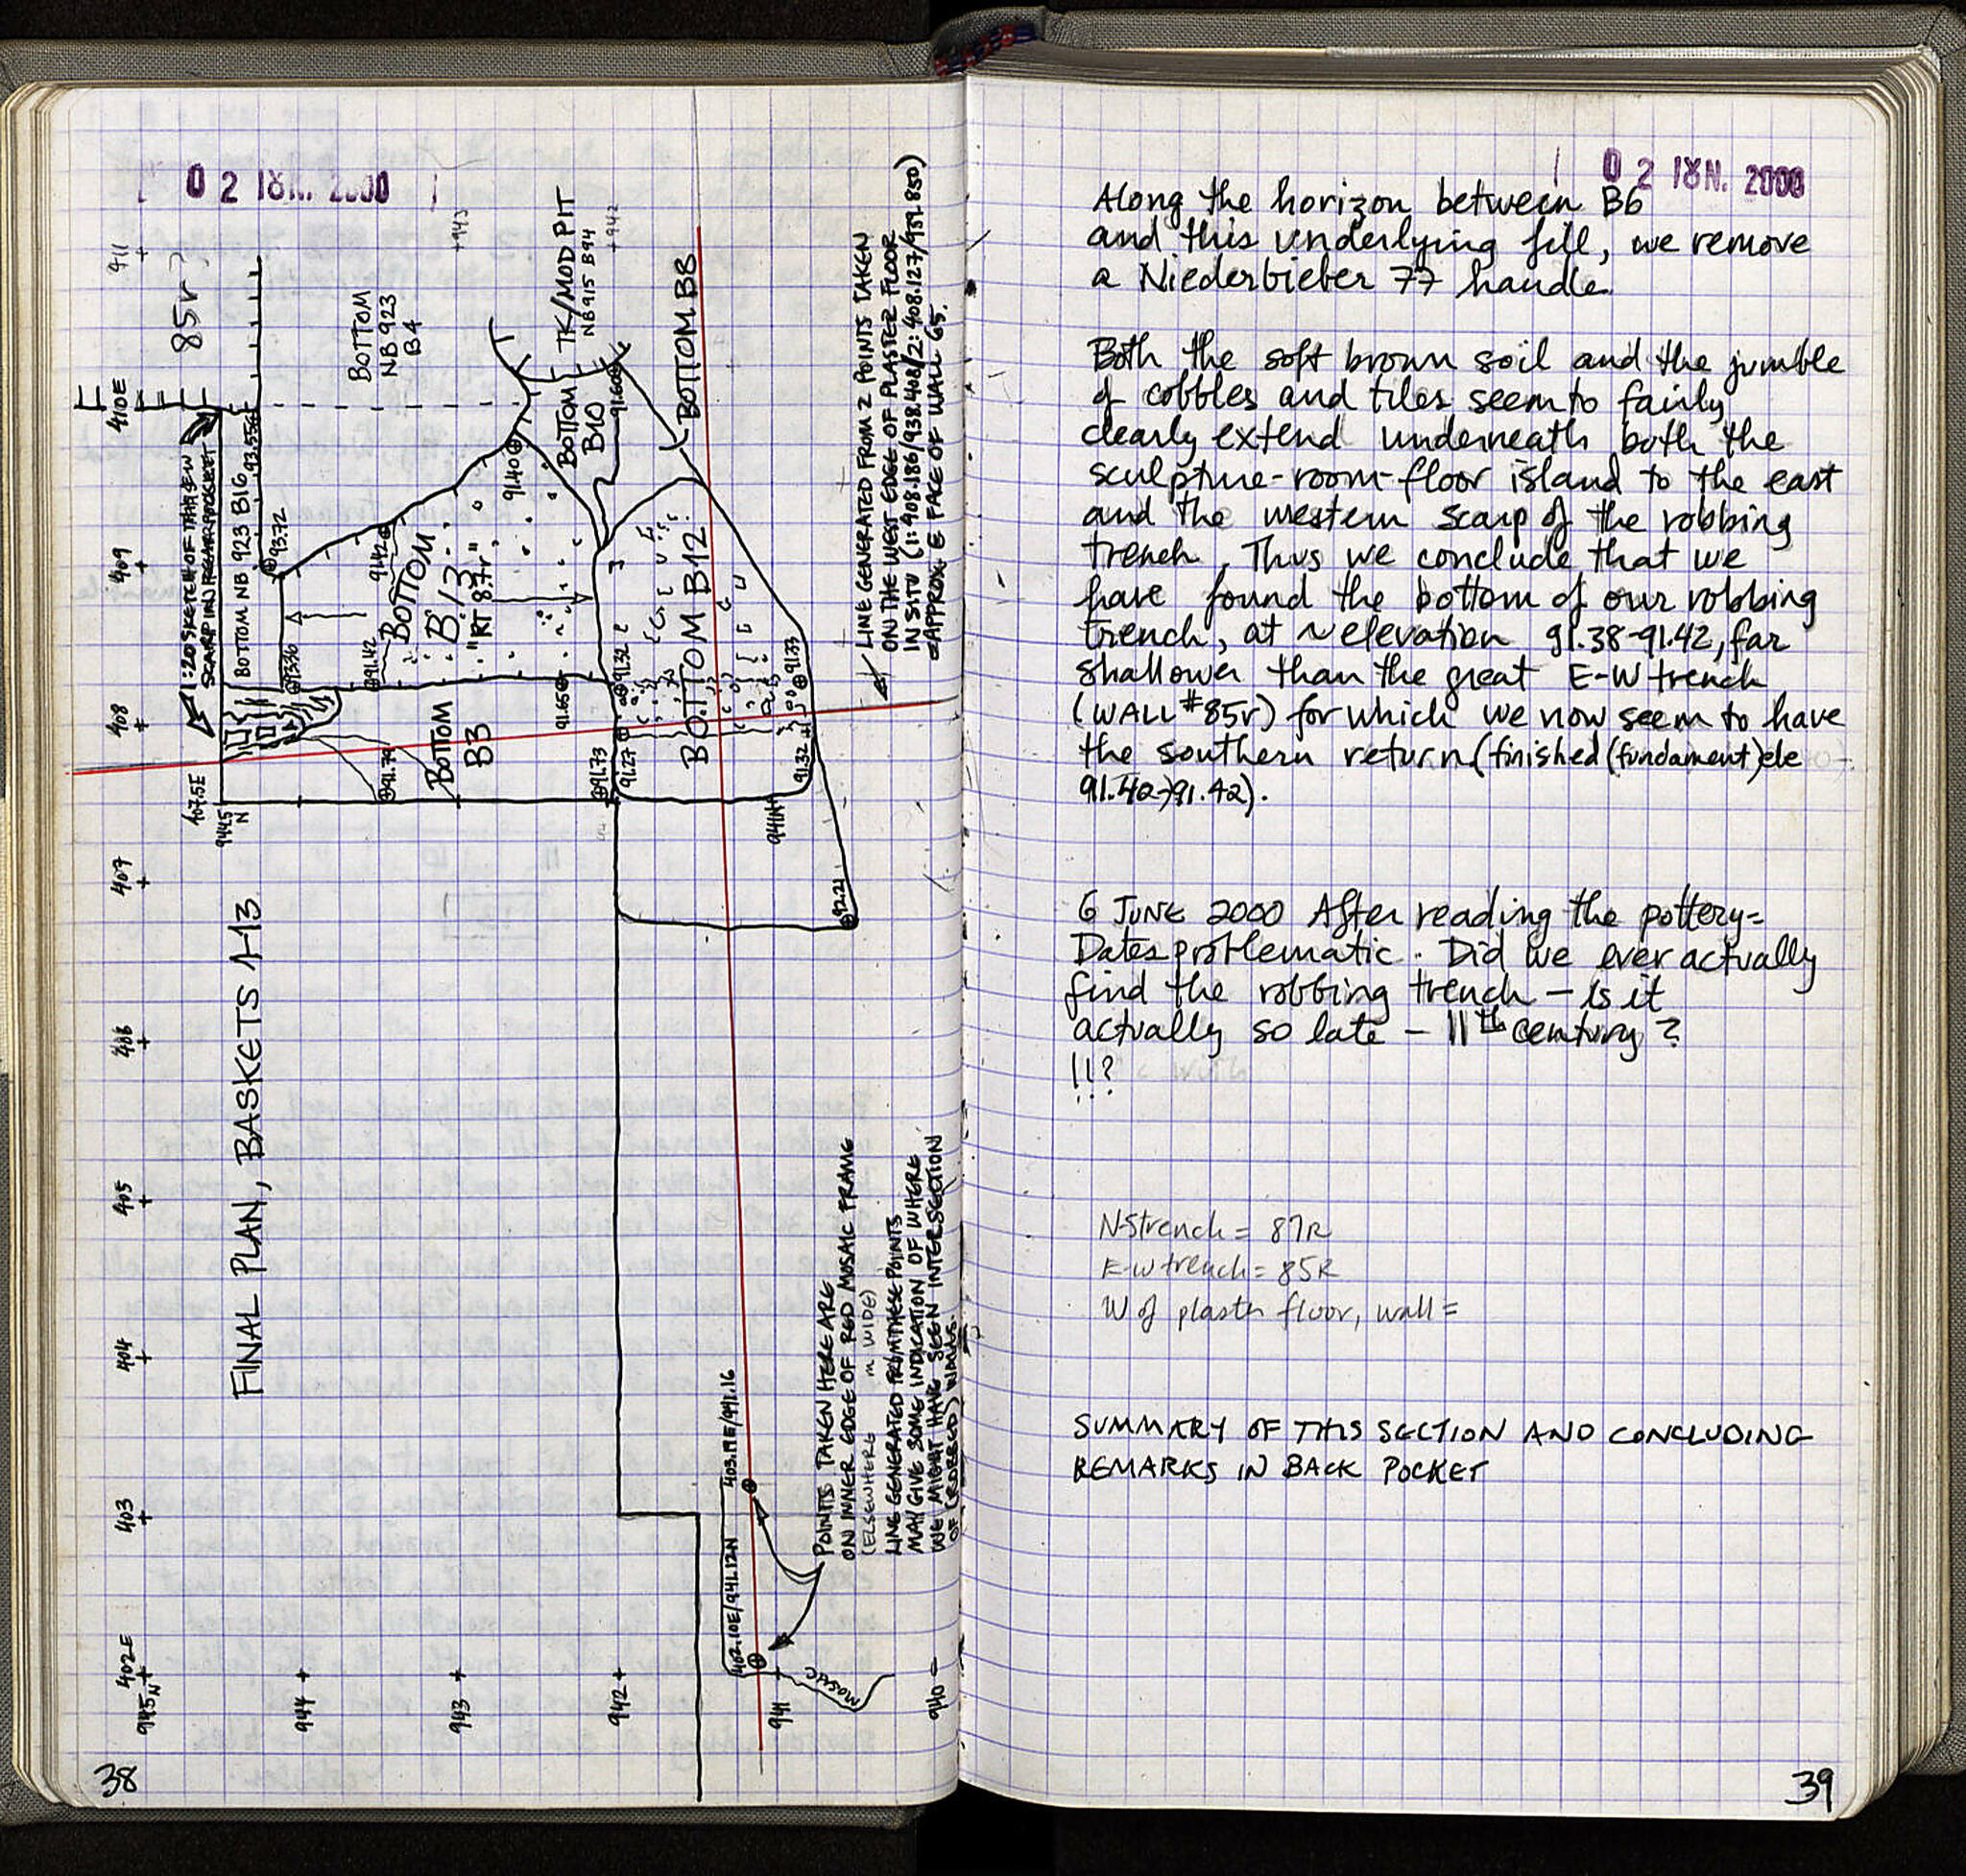 02 IOYN. 2000
411
+943
+942
85r ?
410E
BOTTOM
NB 923
B4
TK/MOD PIT
NB 915 B94
BOTTOM B8
1:20 SKETCH OF THIS E-W
SCARP (IN) REAR POCKET
BOTTOM NB 923 B16
93.55
93.72
91.40
BOTTOM
B10
91.60
409
91.42
BOTTOM
B13
"RT 87r"
BOTTOM B12
93.36
91.42
91.65
91.32
91.33
408
407.5E
944.5
N
91.79
BOTTOM
B3
91.73
91.27
91.32
941N
LINE GENERATED FROM 2 POINTS TAKEN
ON THE WEST EDGE OF PLASTER FLOOR
IN SITU (1: 408.186/938.408/2: 408.127/939.850)
≈ APPROX. E FACE OF WALL 65.
407
92.21
FINAL PLAN, BASKETS 1-13
406
405
404
403
402E
945
N
944
943
942
941
940
403.19E/941.16
402.10E/941.12N
MOSAIC
POINTS TAKEN HERE ARE
ON INNER EDGE OF RED MOSAIC FRAME
(ELSEWHERE m WIDE)
LINE GENERATED FROM THESE POINTS
MAY GIVE SOME INDICATION OF WHERE
WE MIGHT HAVE SEEN INTERSECTION
OF (ROBBED) WALLS.
38
02 IOYN. 2000
Along the horizon between B6
and this underlying fill, we remove
a Niederbieber 77 handle.
Both the soft brown soil and the jumble
of cobbles and tiles seem to fairly
clearly extend underneath both the
sculpture-room-floor island to the east
and the western scarp of the robbing
trench. Thus we conclude that we
have found the bottom of our robbing
trench, at ~elevation 91.38-91.42, far
shallower than the great E-W trench
(WALL #85r) for which we now seem to have
the southern return (finished (fundament) ele
91.42→91.42).
6 JUNE 2000 After reading the pottery=
Dates problematic. Did we ever actually
find the robbing trench - Is it
actually so late - 11th century?
!!?
N-Strench = 87R
E-W trench = 85R
W of plaster floor, wall =
SUMMARY OF THIS SECTION AND CONCLUDING
REMARKS IN BACK POCKET
39